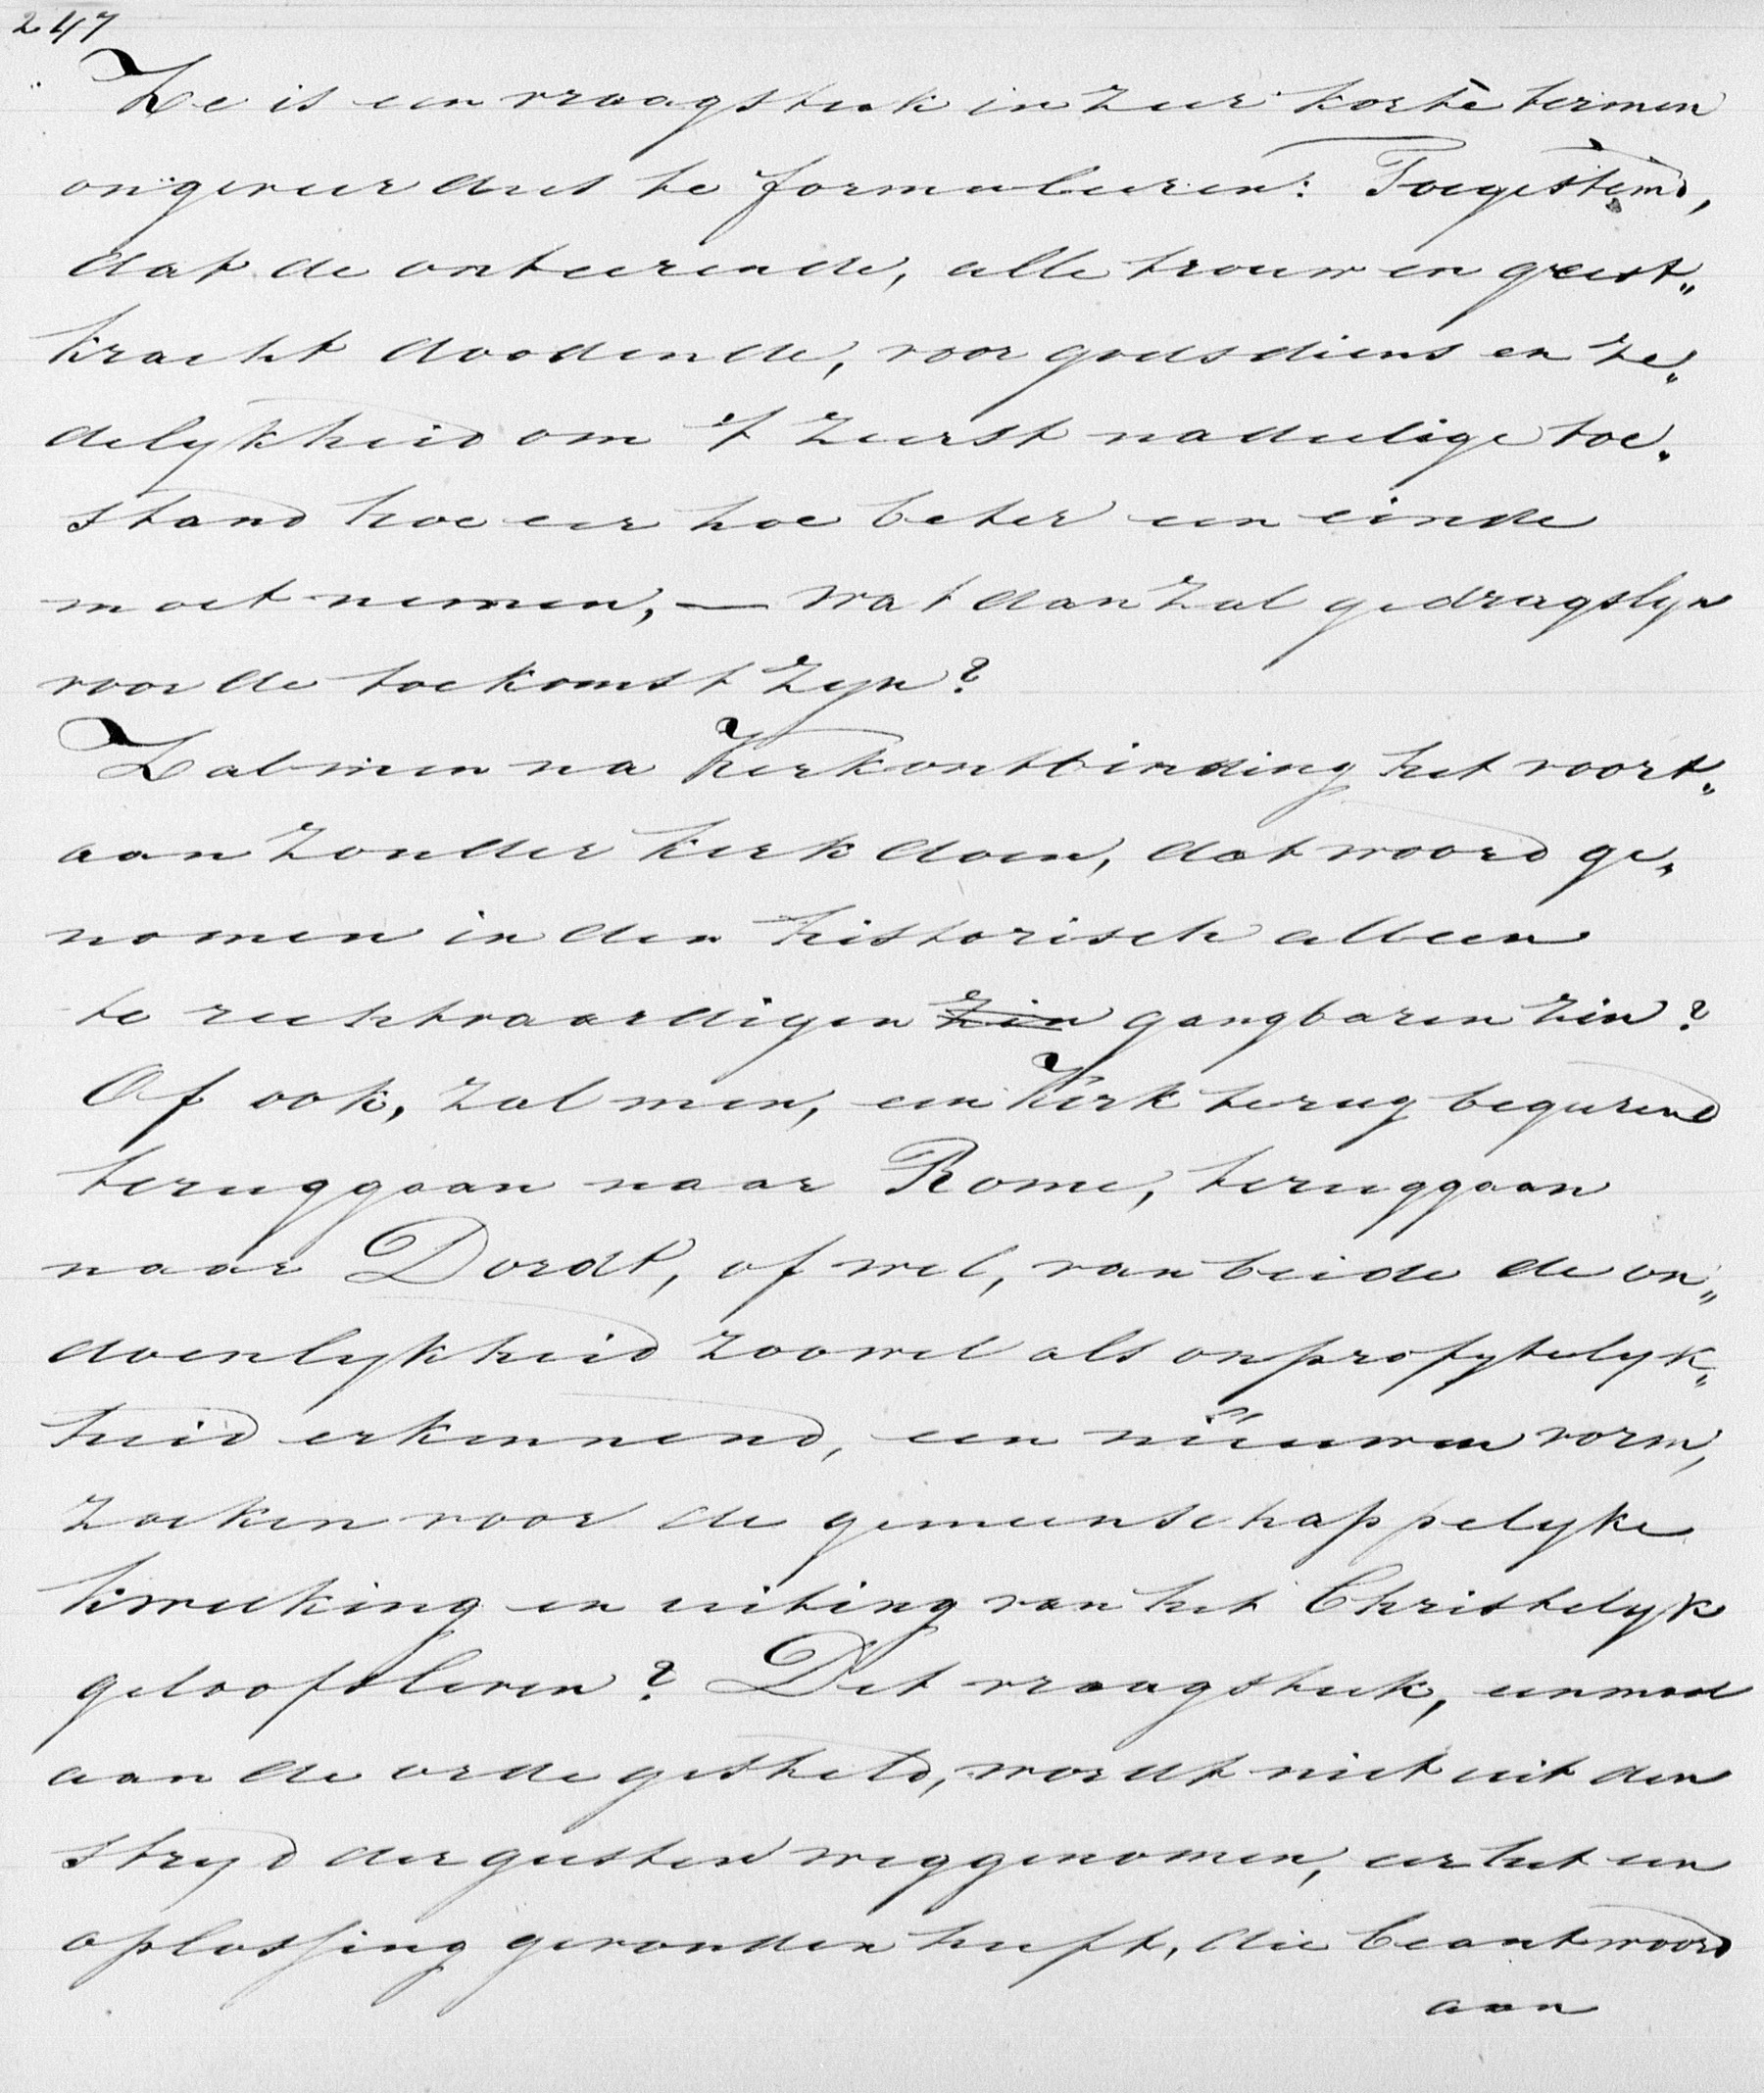 247
Ze is een vraagstuk in zeer korte termen
ongeveer dus te formuleeren: Toegestemd,
dat de onteerende, alle trouw en geest„
kracht doodende, voor godsdiens en ze„
delykheid om 't zeerst nadeelige toe„
stand hoe eer hoe beter een einde
moet nemen, — wat dan zal gedragslyn
voor de toekomst zyn?
Zal men na Kerkontbinding het voort„
aan zonder kerk doen, dat woord ge„
nomen in den historisch alleen
te rechtvaardigen zin gangbaren zin?
Of ook, zal men, een Kerk terug begeerend
teruggaan naar Rome, teruggaan
naar Dordt, of wel, van beide de on„
doenlykheid zoowel als onprofytelyk„
heid erkennend, een nieuwen vorm,
zoeken voor de gemeenschappelyke
kweeking en uiting van het Christelyk
geloofsleven? Dit vraagstuk, eenmaal
aan de orde gesteld, wordt niet uit den
stryd der geesten weggenomen, eer het een
oplossing gevonden heeft, die beantwoord
aan